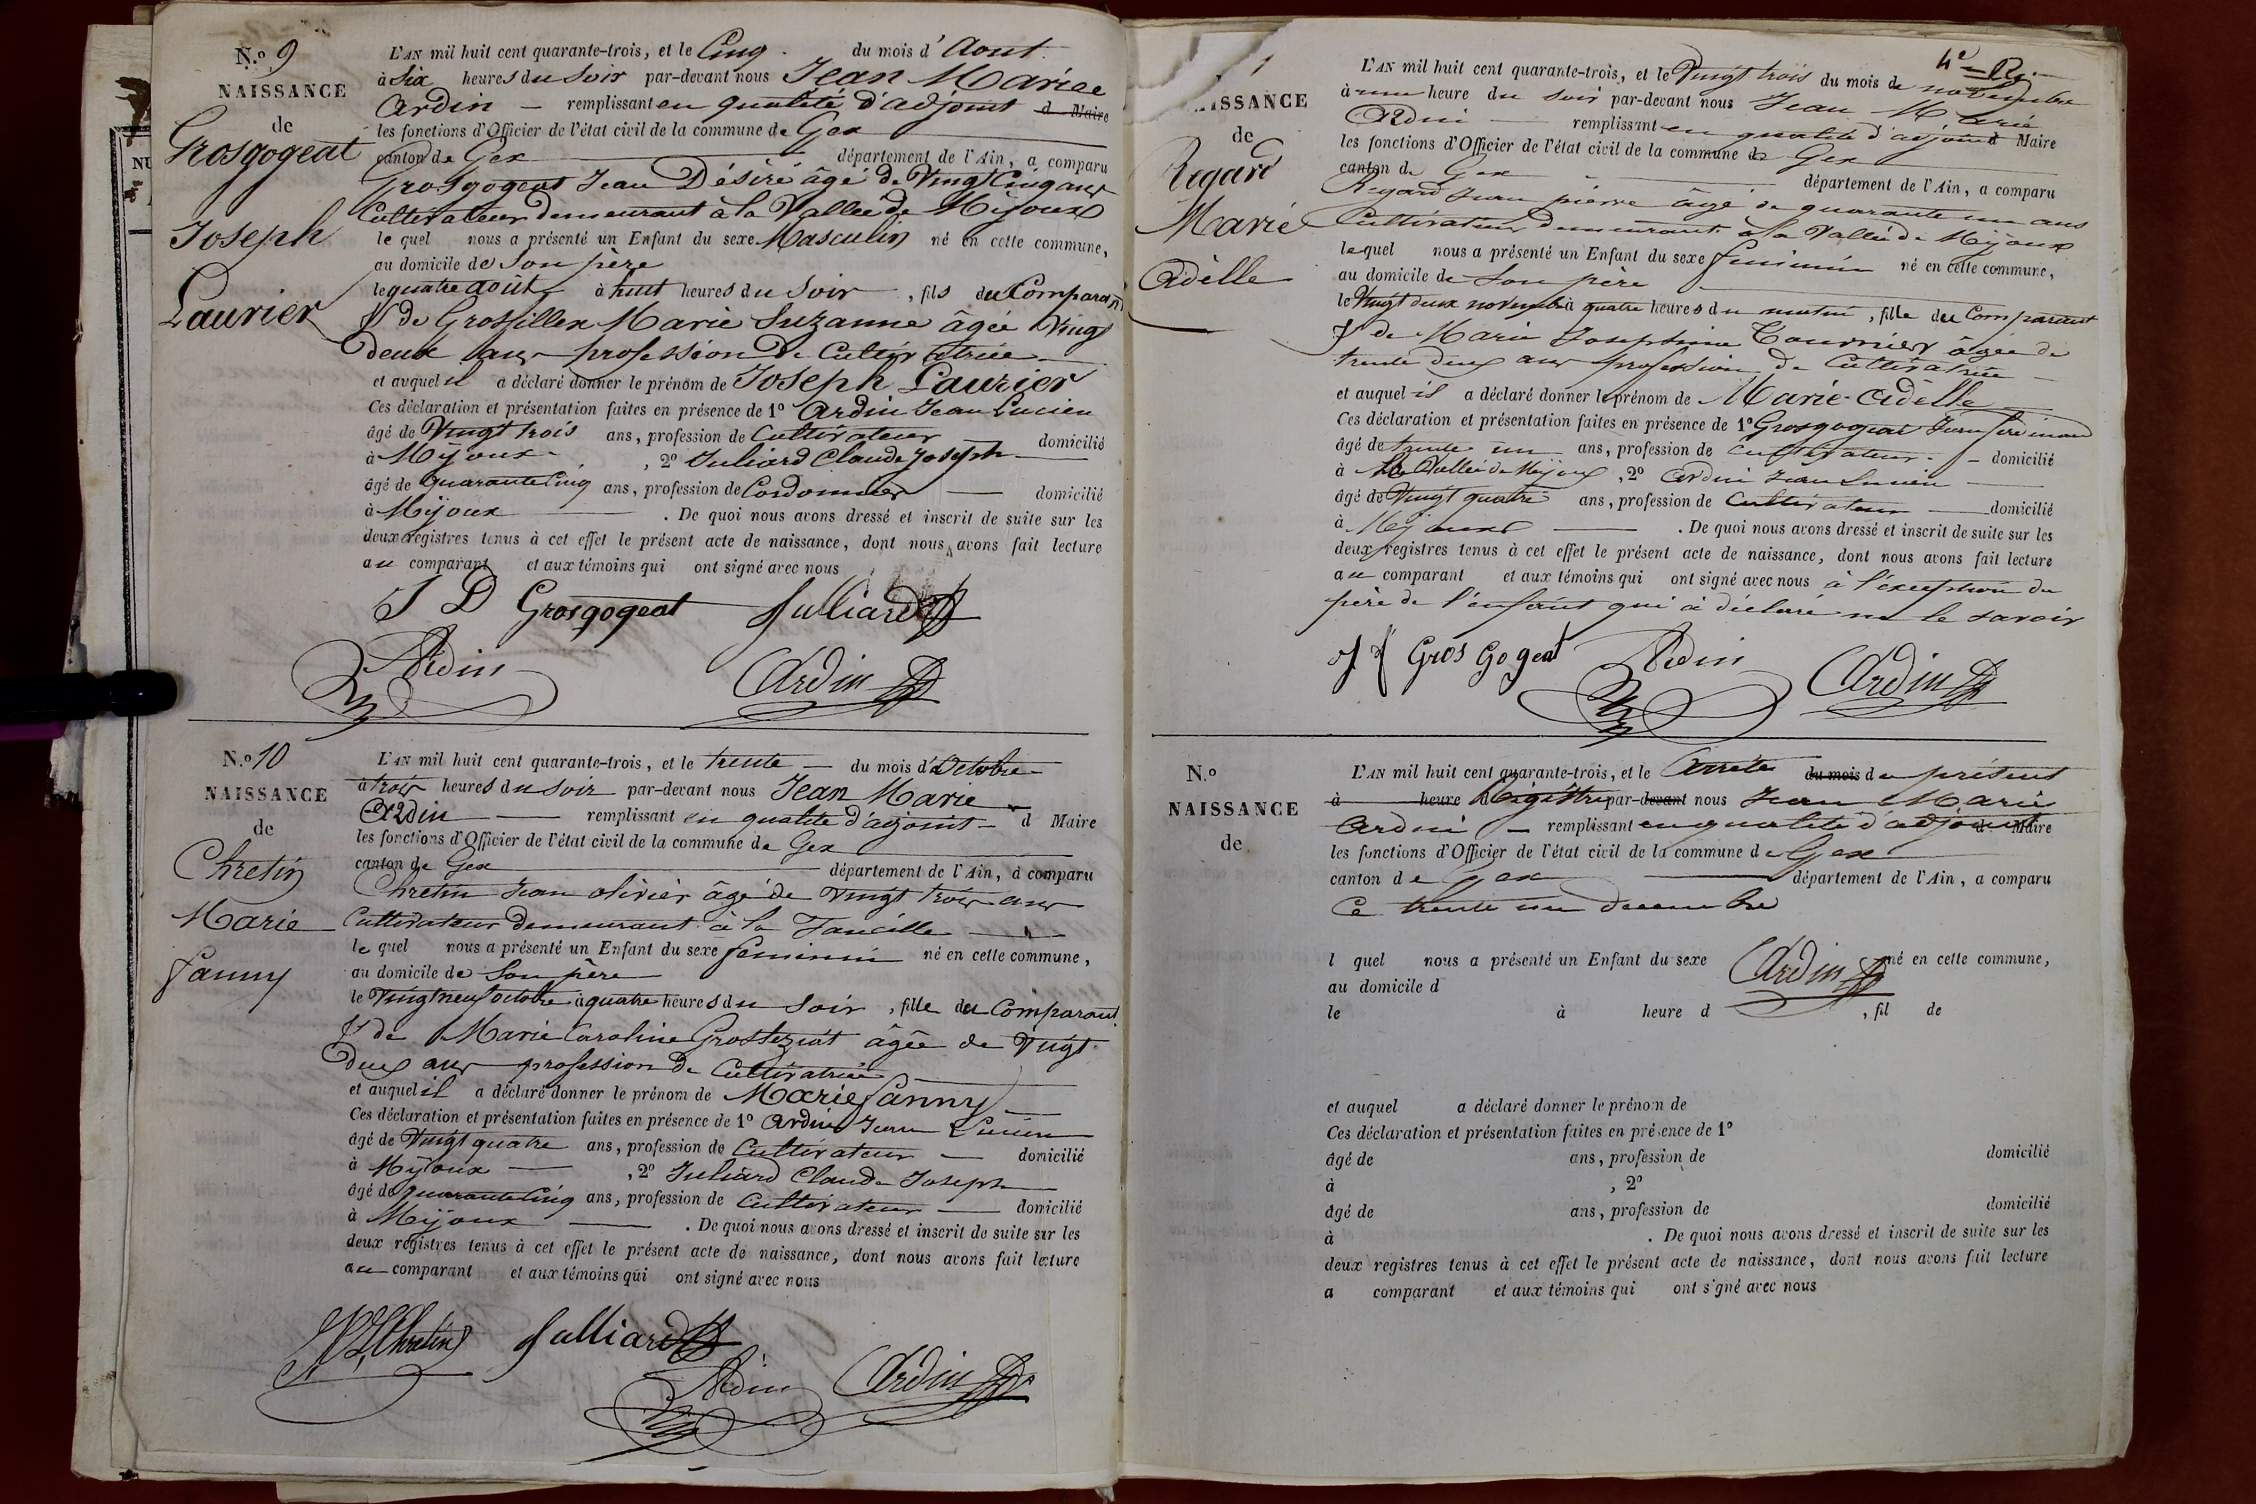 N.º 9
NAISSANCE
de
Grosgogeat
Joseph
Laurier
L'AN mil huit cent quarante-trois, et le Cinq du mois d'Aout
à Six heures du Soir par-devant nous Jean Marie
Ardin — remplissant en qualité d'adjoint d Maire
les fonctions d'Officier de l'état civil de la commune de Gex
canton de Gex département de l'Ain, a comparu
Grosgogeat Jean Désiré âgé de Vingt Cinq ans
Cultivateur demeurant à la Vallée de Mijoux
le quel nous a présenté un Enfant du sexe Masculin né en cette commune,
au domicile de Son père
le quatre août à huit heures du Soir, fils du Comparant
& de Grosfillex Marie Suzanne âgée Vingt
deux ans profession de Cultivatrice
et auquel il a déclaré donner le prénom de Joseph Laurier
Ces déclaration et présentation faites en présence de 1º Ardin Jean Lucien
âgé de Vingt trois ans, profession de Cultivateur domicilié
à Mijoux, 2º Juliard Claude Joseph
âgé de quarante Cinq ans, profession de Cordonnier — domicilié
à Mijoux. De quoi nous avons dressé et inscrit de suite sur les
deux registres tenus à cet effet le présent acte de naissance, dont nous avons fait lecture
au comparant et aux témoins qui ont signé avec nous
J D Grosgogeat Julliard
Ardin Ardin
N.º 10
NAISSANCE
de
Chretin
Marie
fanny
L'AN mil huit cent quarante-trois, et le trente — du mois d'Octobre
à trois heures du Soir par-devant nous Jean Marie
Ardin — remplissant en qualité d'adjoint d Maire
les fonctions d'Officier de l'état civil de la commune de Gex
canton de Gex département de l'Ain, a comparu
Chretin Jean olivier âgé de vingt trois ans
Cultivateur demeurant à la Faucille
le quel nous a présenté un Enfant du sexe feminin né en cette commune,
au domicile de Son père
le Vingt neuf octobre à quatre heures du Soir, fille du Comparant
& de Marie Caroline âgée de Vingt
deux ans profession de Cultivatrice
et auquel il a déclaré donner le prénom de Marie fanny
Ces déclaration et présentation faites en présence de 1º Ardin Jean Lucien
âgé de Vingt quatre ans, profession de Cultivateur — domicilié
à Mijoux, 2º Juliard Claude Joseph
âgé de quarante Cinq ans, profession de Cultivateur domicilié
à Mijoux. De quoi nous avons dressé et inscrit de suite sur les
deux registres tenus à cet effet le présent acte de naissance, dont nous avons fait lecture
au comparant et aux témoins qui ont signé avec nous
Chretin Julliard
Ardin Ardin
4e
1
NAISSANCE
de
Regard
Marie
Adèlle
L'AN mil huit cent quarante-trois, et le Vingt trois du mois de novembre
à une heure du soir par-devant nous Jean Marie
Ardin remplissant en qualité d'adjoint d Maire
les fonctions d'Officier de l'état civil de la commune de Gex
canton de Gex département de l'Ain, a comparu
Regard Jean pierre âgé de quarante un ans
Cultivateur demeurant à la Vallée de Mijoux
lequel nous a présenté un Enfant du sexe feminin né en cette commune,
au domicile de Son père
le Vingt deux novembre à quatre heures du matin, fille du Comparant
& de Marie Josephine Tournier âgée de
trente deux ans profession de Cultivatrice
et auquel il a déclaré donner le prénom de Marie Adèlle
Ces déclaration et présentation faites en présence de 1º Grosgogeat Jean ferdinand
âgé de trente un ans, profession de Cultivateur — domicilié
à la Vallée de Mijoux, 2º Ardin Jean Lucien
âgé de Vingt quatre ans, profession de Cultivateur domicilié
à Mijoux. De quoi nous avons dressé et inscrit de suite sur les
deux registres tenus à cet effet le présent acte de naissance, dont nous avons fait lecture
au comparant et aux témoins qui ont signé avec nous à l'exception du
père de l'enfant qui a déclaré ne le savoir
J f Gros Gogeat Ardin Ardin
N.º
NAISSANCE
de
L'AN mil huit cent quarante-trois, et le Arrêté du mois du présent
à heure d Régistre par-devant nous Jean Marie
Ardin — remplissant en qualité d'adjoint d Maire
les fonctions d'Officier de l'état civil de la commune de Gex
canton de Gex département de l'Ain, a comparu
Ce trente un decembre
l quel nous a présenté un Enfant du sexe né en cette commune,
Ardin
au domicile d
le à heure d , fil de
et auquel a déclaré donner le prénom de
Ces déclaration et présentation faites en présence de 1º
âgé de ans, profession de domicilié
à , 2º
âgé de ans, profession de domicilié
à . De quoi nous avons dressé et inscrit de suite sur les
deux registres tenus à cet effet le présent acte de naissance, dont nous avons fait lecture
a comparant et aux témoins qui ont signé avec nous